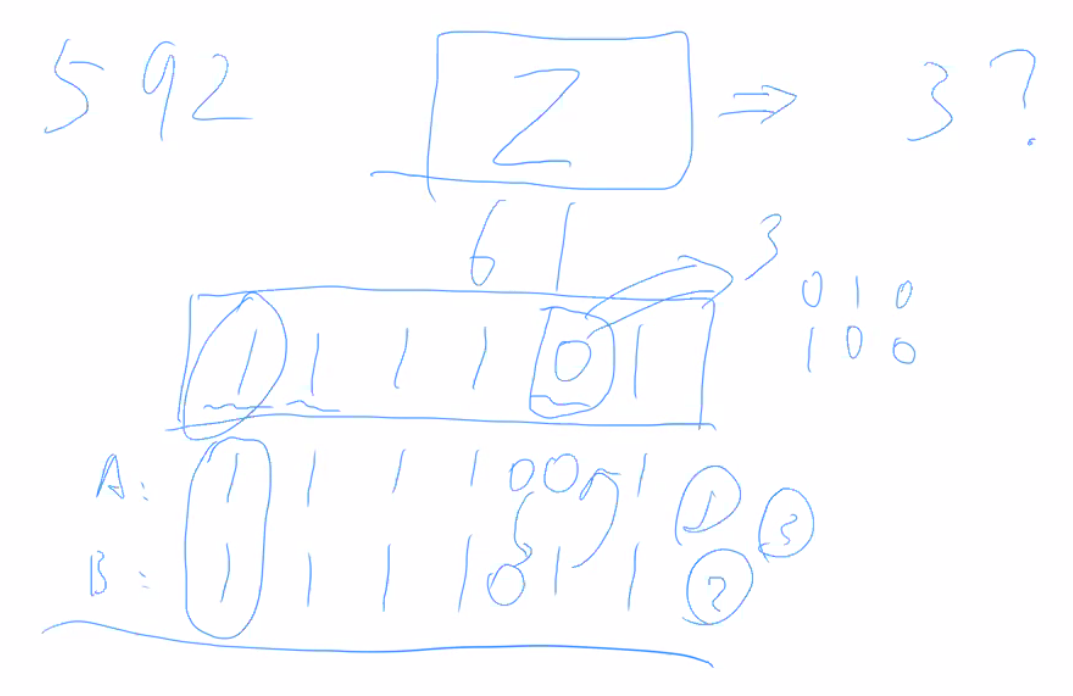 592 Z ⇒ 3?
61 3
0 1 0
1 1 1 1 0 1 1 0 0
A: 1 1 1 1 0 0 1 1 3
B: 1 1 1 1 0 1 1 2